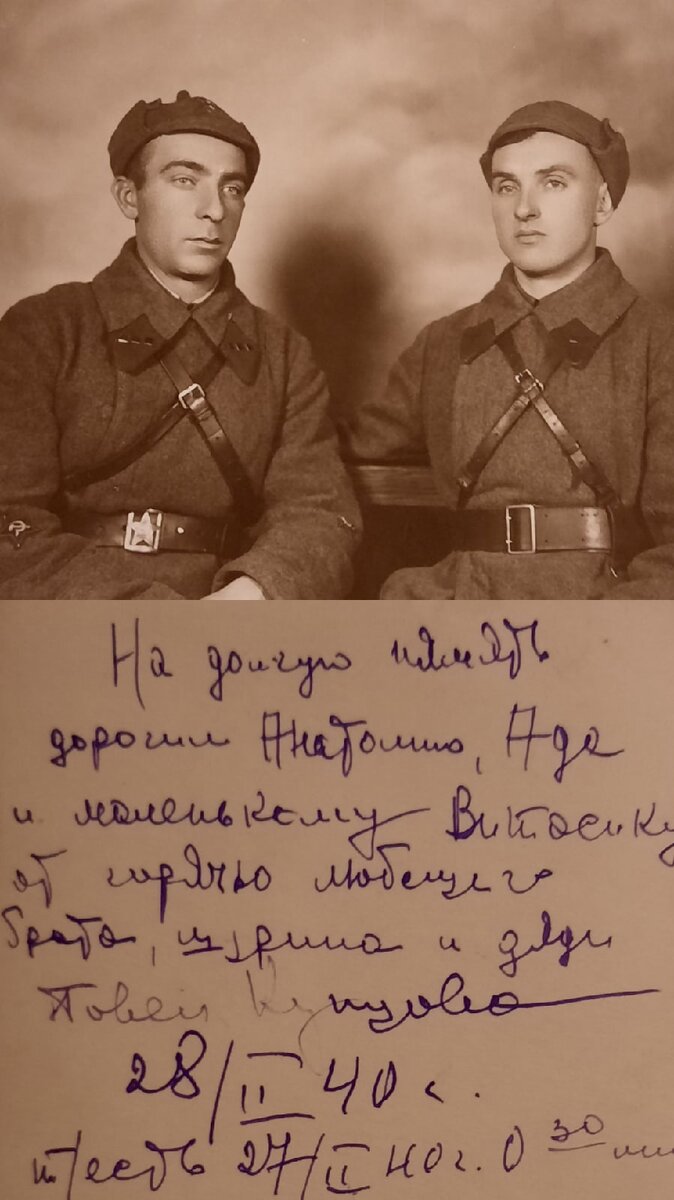 На долгую память
дорогим Анатолию, Ада
и маленькому Витосику
от горячо любещего
брата, шурина и дяди
Павел Купцова
28/II 40 г.
т/есть 27/II 40 г. 0 30 мин